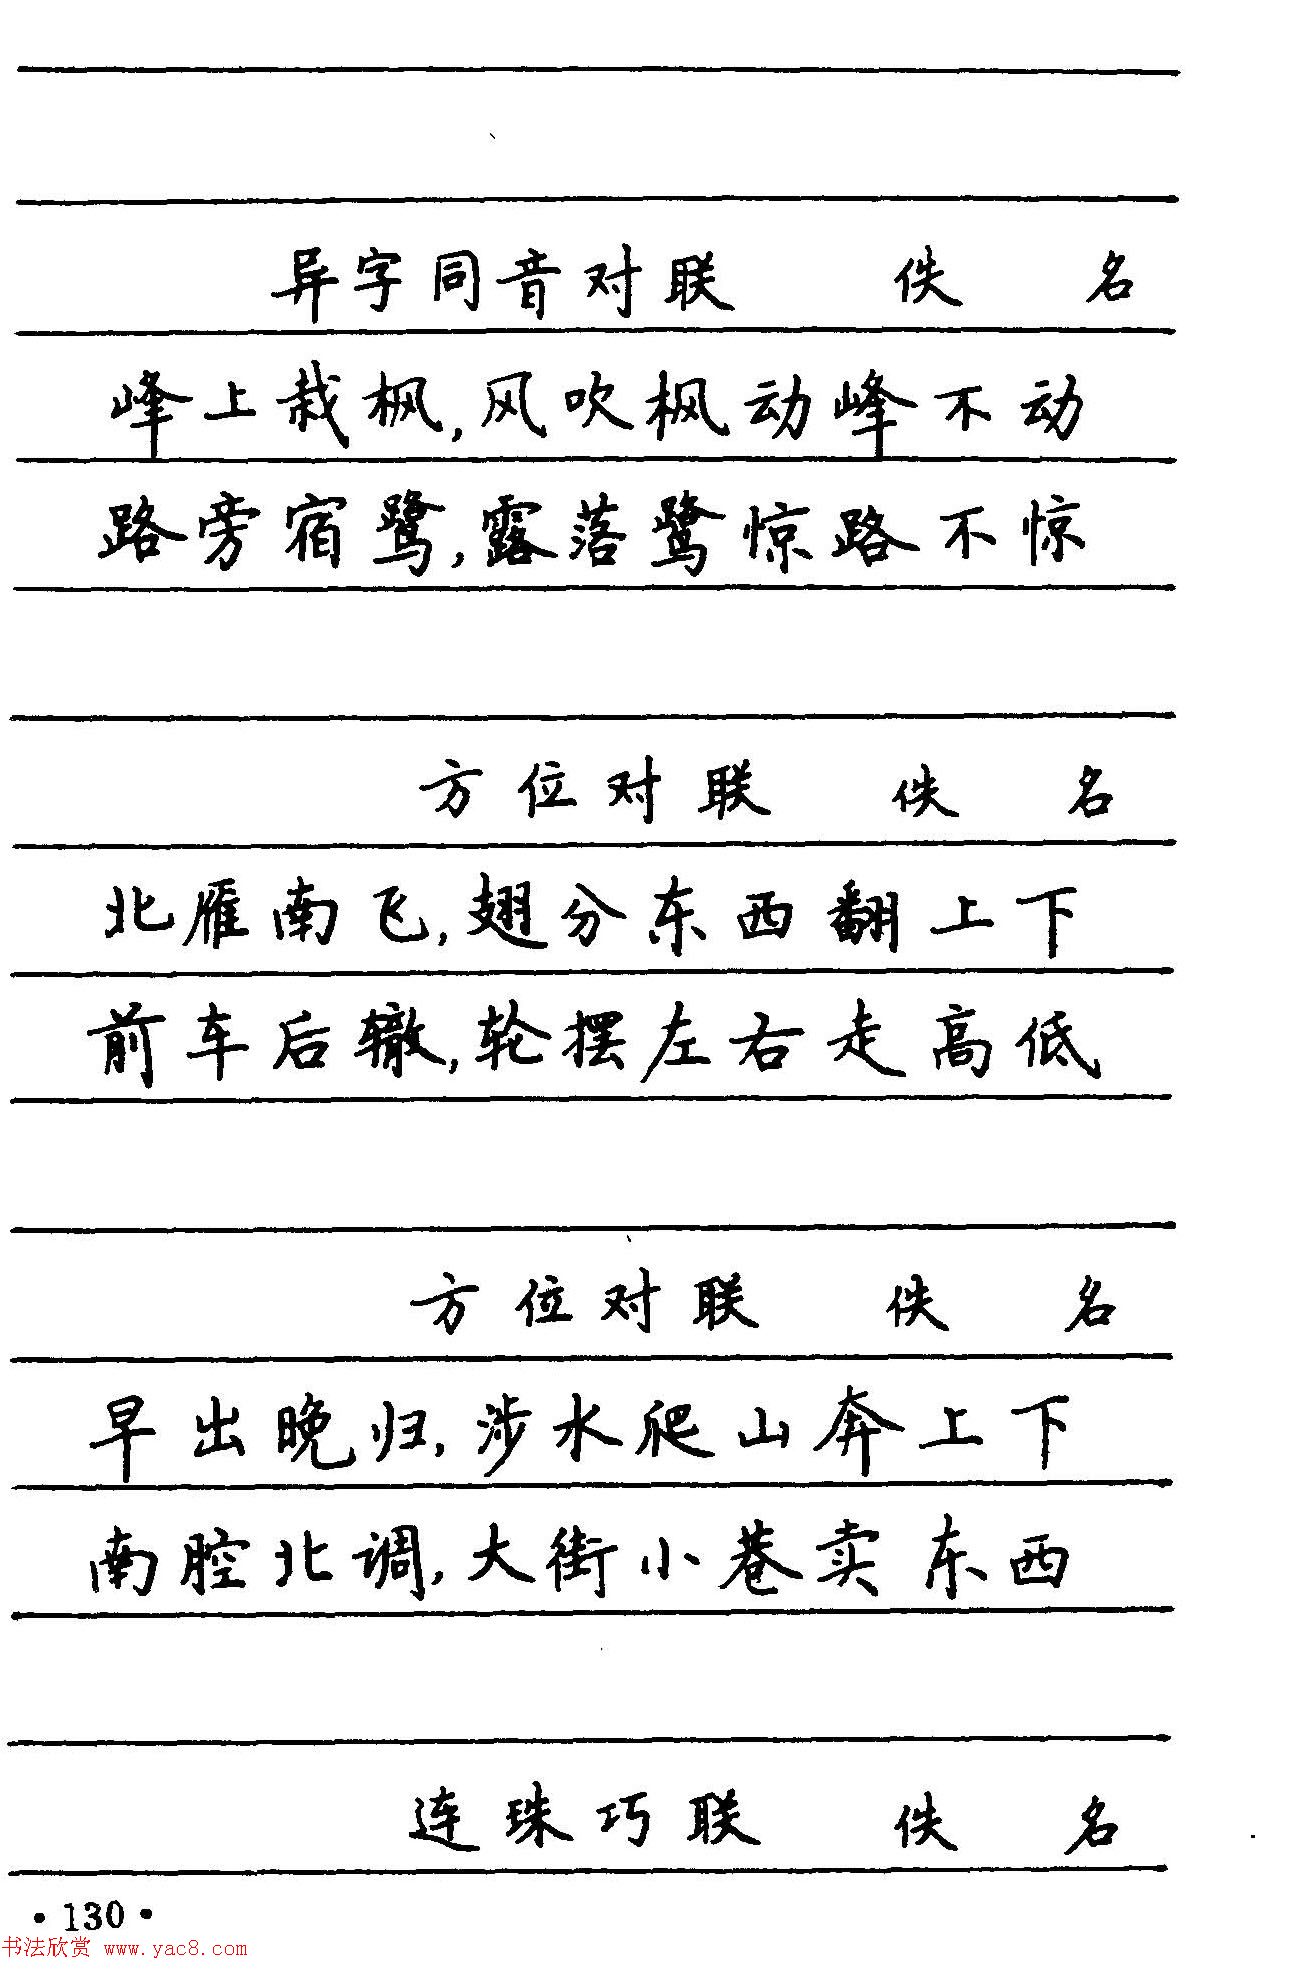 异字同音对联 佚 名
峰上栽枫,风吹枫动峰不动
路旁宿鹭,露落鹭惊路不惊
方位对联 佚 名
北雁南飞,翅分东西翻上下
前车后辙,轮摆左右走高低
方位对联 佚 名
早出晚归,涉水爬山奔上下
南腔北调,大街小巷卖东西
连珠巧联 佚 名
·130·
书法欣赏 www.yac8.com